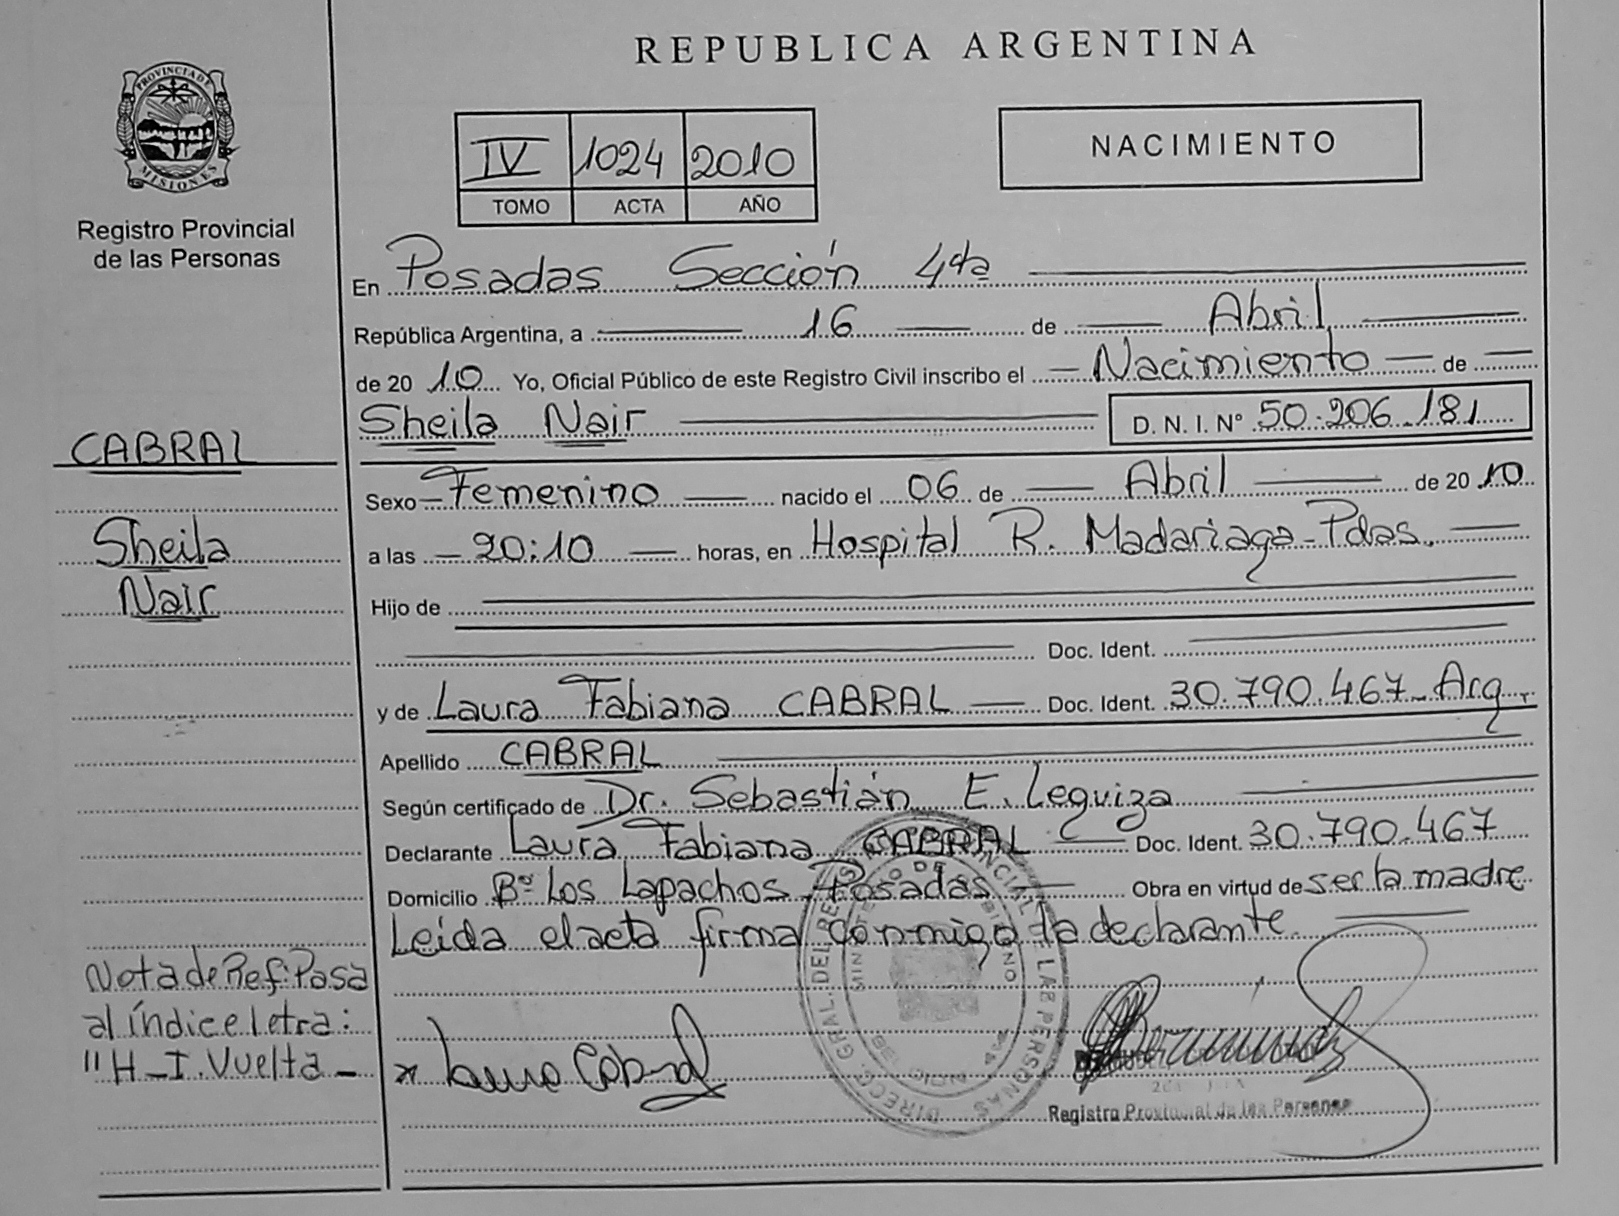 REPUBLICA ARGENTINA
PROVINCIA DE
MISIONES
Registro Provincial
de las Personas
IV 1024 2010
TOMO ACTA AÑO
NACIMIENTO
En Posadas Sección 4ta
República Argentina, a 16 de Abril
de 2010 Yo, Oficial Público de este Registro Civil inscribo el Nacimiento de
Sheila Nair D. N. I. Nº 50.206.181
CABRAL
Sheila
Nair
Sexo Femenino nacido el 06 de Abril de 2010
a las 20:10 horas, en Hospital R. Madariaga-Pdas.
Hijo de
Doc. Ident.
y de Laura Fabiana CABRAL Doc. Ident. 30.790.467 Arg.
Apellido CABRAL
Según certificado de Dr. Sebastián E. Leguiza
Declarante Laura Fabiana CABRAL Doc. Ident. 30.790.467
Domicilio Bº Los Lapachos, Posadas Obra en virtud de ser la madre
Leida el acta firma conmigo la declarante
Nota de Ref: Pasa
al índice letra:
"H-I. Vuelta-
x Laura Cabral
Registro Provincial de las Personas
DIRECC. GRAL. DEL REGISTRO PROVINCIAL DE LAS PERSONAS
MINISTERIO DE GOBIERNO